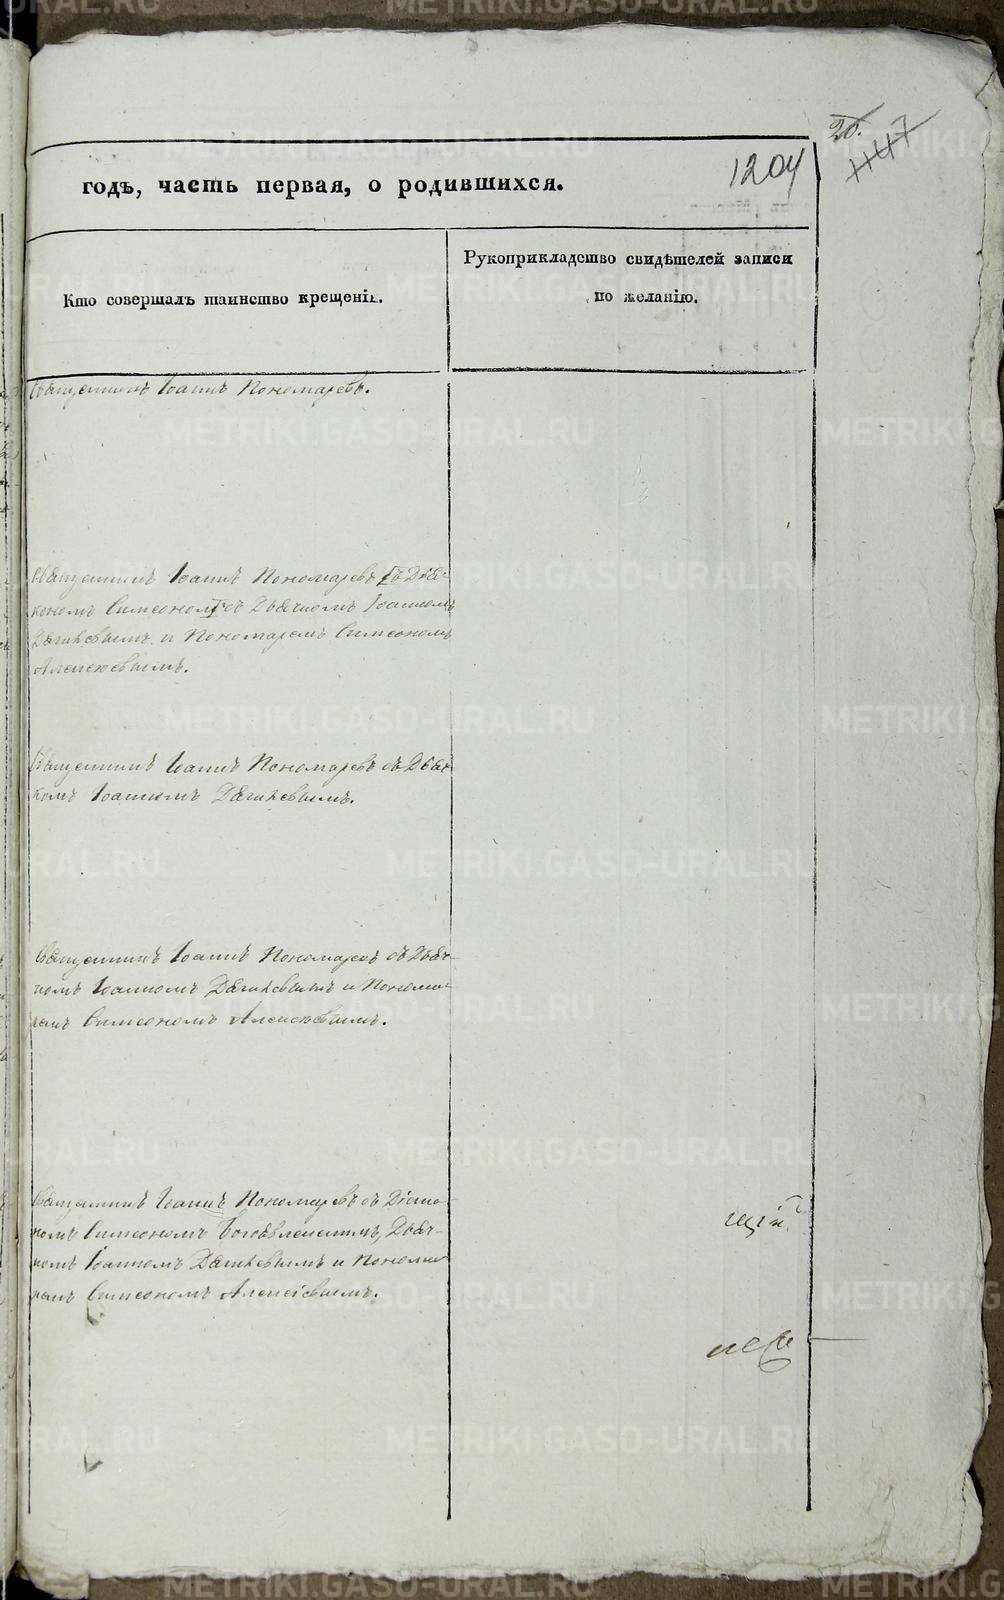 20.
1147
1204
годъ, часть первая, о родившихся.
Кто совершалъ таинство крещенія.
Рукоприкладство свидѣтелей записи
по желанію.
Священникъ Іоаннъ Пономаревъ.
Священникъ Іоаннъ Пономаревъ съ Діа-
кономъ Симеономъ съ Дьячкомъ Іоанномъ
Дягилевымъ и Пономаремъ Симеономъ
Алексѣевымъ.
Священникъ Іоаннъ Пономаревъ съ Дьяч
комъ Іоанномъ Дягилевымъ.
Священникъ Іоаннъ Пономаревъ съ Дьяч-
комъ Іоанномъ Дягилевымъ и Понома
ремъ Симеономъ Алексѣевымъ.
Священникъ Іоаннъ Пономаревъ съ Діако
номъ Симеономъ Богоявленскимъ, Дьяч-
комъ Іоанномъ Дягилевымъ и Понома
ремъ Симеономъ Алексіевымъ.
METRIKI.GASO-URAL.RU